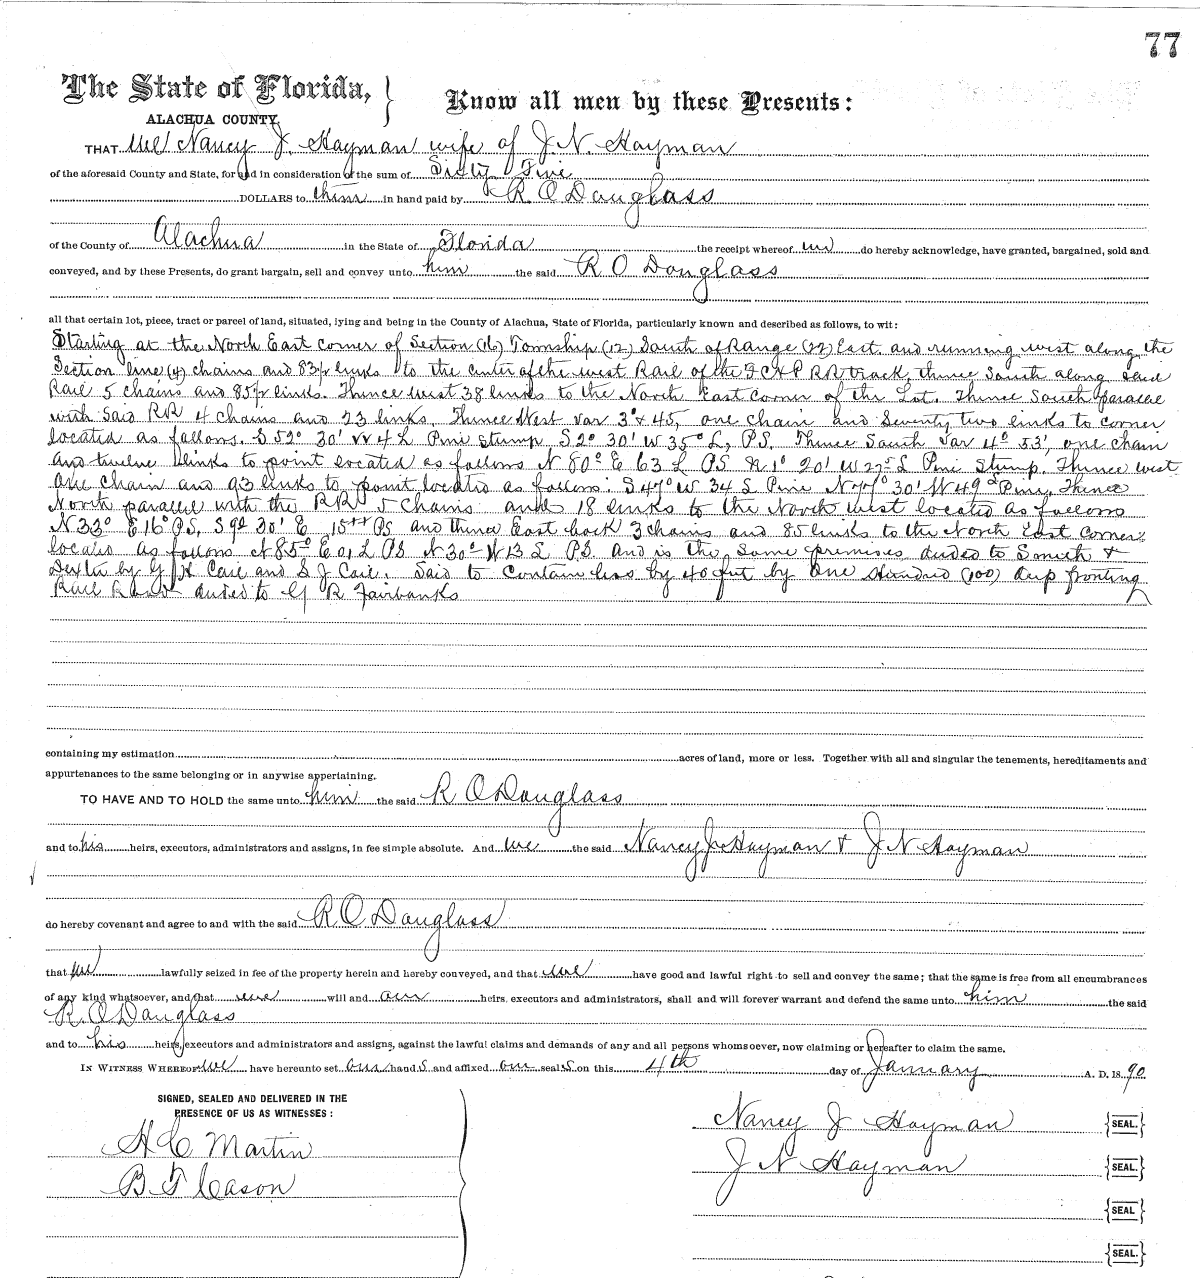 77
The State of Florida, } Know all men by these Presents:
ALACHUA COUNTY.
THAT We Nancy J. Hayman wife of J. N. Hayman
of the aforesaid County and State, for and in consideration of the sum of Sixty Five
DOLLARS to them in hand paid by R O Douglass
of the County of Alachua in the State of Florida the receipt whereof we do hereby acknowledge, have granted, bargained, sold and
conveyed, and by these Presents, do grant bargain, sell and convey unto him the said R O Douglass
all that certain lot, piece, tract or parcel of land, situated, lying and being in the County of Alachua, State of Florida, particularly known and described as follows, to wit:
Starting at the North East Corner of Section (16) Township (12) South of Range (22) East. and running west along the
Section line (4) chains and 83½ links to the center of the west Rail of the F C & P RR track, thence South along said
Rail 5 chains and 85½ links. Thence West 38 links to the North East Corner of the Lot. Thence South parallel
with said RR 4 chains and 23 links. Thence West Var 3° & 45, one chain and Seventy two links to corner
located as follows. S 52° 30' W 4 L Pine stump S 2° 30' W 35 L, P.S. Thence South Var 4° 53', one chain
and twelve links to point located as follows N 80° E 63 L PS N 1° 20' W 275 L Pine Stump. Thence west
One chain and 93 links to point located as follows: S 47° W 34 L Pine N 77° 30' W 49 Pine, Thence
North parallel with the RR 5 Chains and 18 links to the North west located as follows
N 33° E 16 PS, S 9° 30' E 15 PS and thence East back 3 chains and 85 links to the North East Corner
located as follows N 85° E 91 L PS N 30° W 13 L PS and is the same premises deeded to Smith &
Dexter by G H Cail and S J Cail. Said to Contain less by 40 feet by One Hundred (100) deep fronting
Rail Road deeded to G R Fairbanks
containing my estimation acres of land, more or less. Together with all and singular the tenements, hereditaments and
appurtenances to the same belonging or in anywise appertaining.
TO HAVE AND TO HOLD the same unto him the said R O Douglass
and to his heirs, executors, administrators and assigns, in fee simple absolute. And we the said Nancy J Hayman & J N Hayman
do hereby covenant and agree to and with the said R O Douglass
that we lawfully seized in fee of the property herein and hereby conveyed, and that we have good and lawful right to sell and convey the same; that the same is free from all encumbrances
of any kind whatsoever, and that we will and our heirs, executors and administrators, shall and will forever warrant and defend the same unto him the said
R. O Douglass
and to his heirs, executors and administrators and assigns, against the lawful claims and demands of any and all persons whomsoever, now claiming or hereafter to claim the same.
IN WITNESS WHEREOF we have hereunto set our hand S and affixed our seal S on this 4th day of January A. D. 18 90
SIGNED, SEALED AND DELIVERED IN THE
PRESENCE OF US AS WITNESSES:
Nancy J Hayman {SEAL.}
H C Martin
J N Hayman {SEAL.}
B F Cason
{SEAL}
{SEAL.}